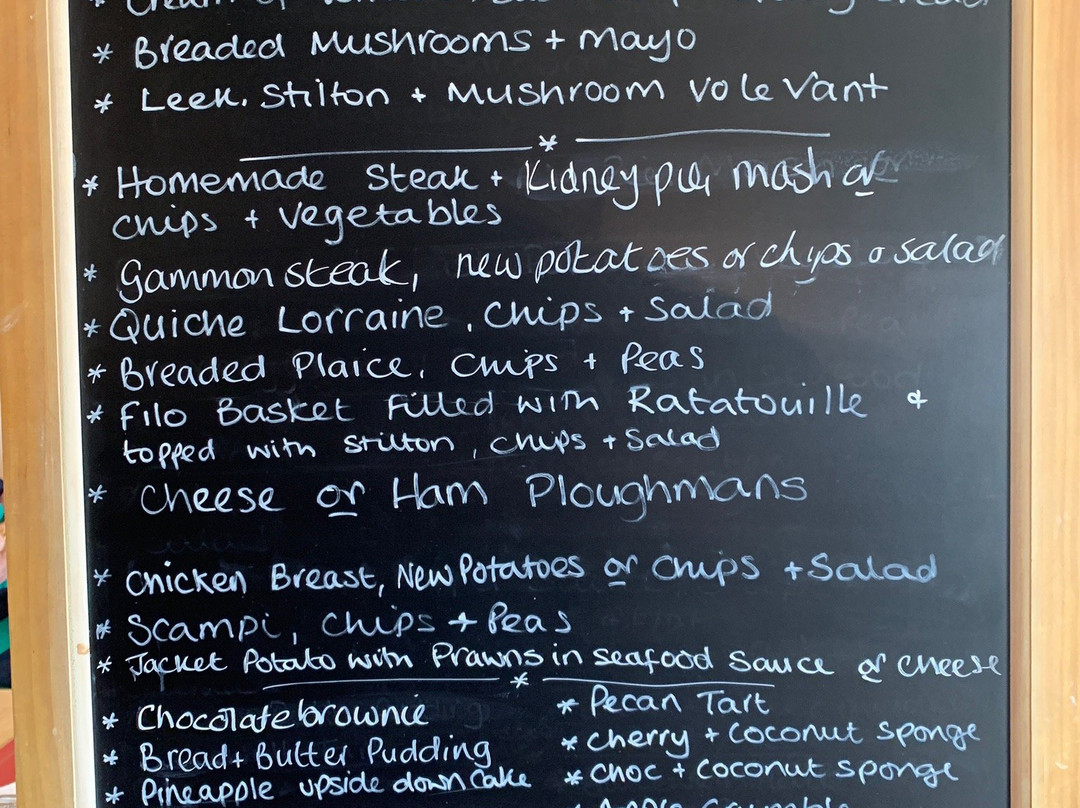 * Cream of
* Breaded Mushrooms + mayo
* Leek, Stilton + Mushroom Vo le Vant
*
* Homemade Steak + Kidney pie, mash or
chips + vegetables
* Gammon steak, new potatoes or chips o salad
* Quiche Lorraine, Chips + Salad
* Breaded Plaice, Chips + Peas
* Filo Basket Filled with Ratatouille &
topped with Stilton, Chips + Salad
* Cheese or Ham Ploughmans
* Chicken Breast, New Potatoes or Chips + Salad
* Scampi, Chips + Peas
* Jacket Potato with Prawns in seafood Sauce or cheese
*
* Chocolate brownie
* Bread + Butter Pudding
* Pineapple upside down Cake
* Pecan Tart
* Cherry + Coconut Sponge
* Choc + Coconut Sponge